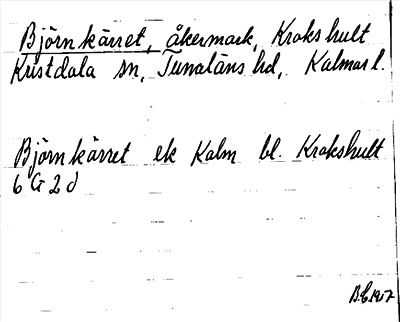 Björnkärret, åkermark, Krokshult
Kristdala sn, Tunaläns hd, Kalmar l.
Björnkärret ek Kalm bl. Krokshult
6 G 2 d